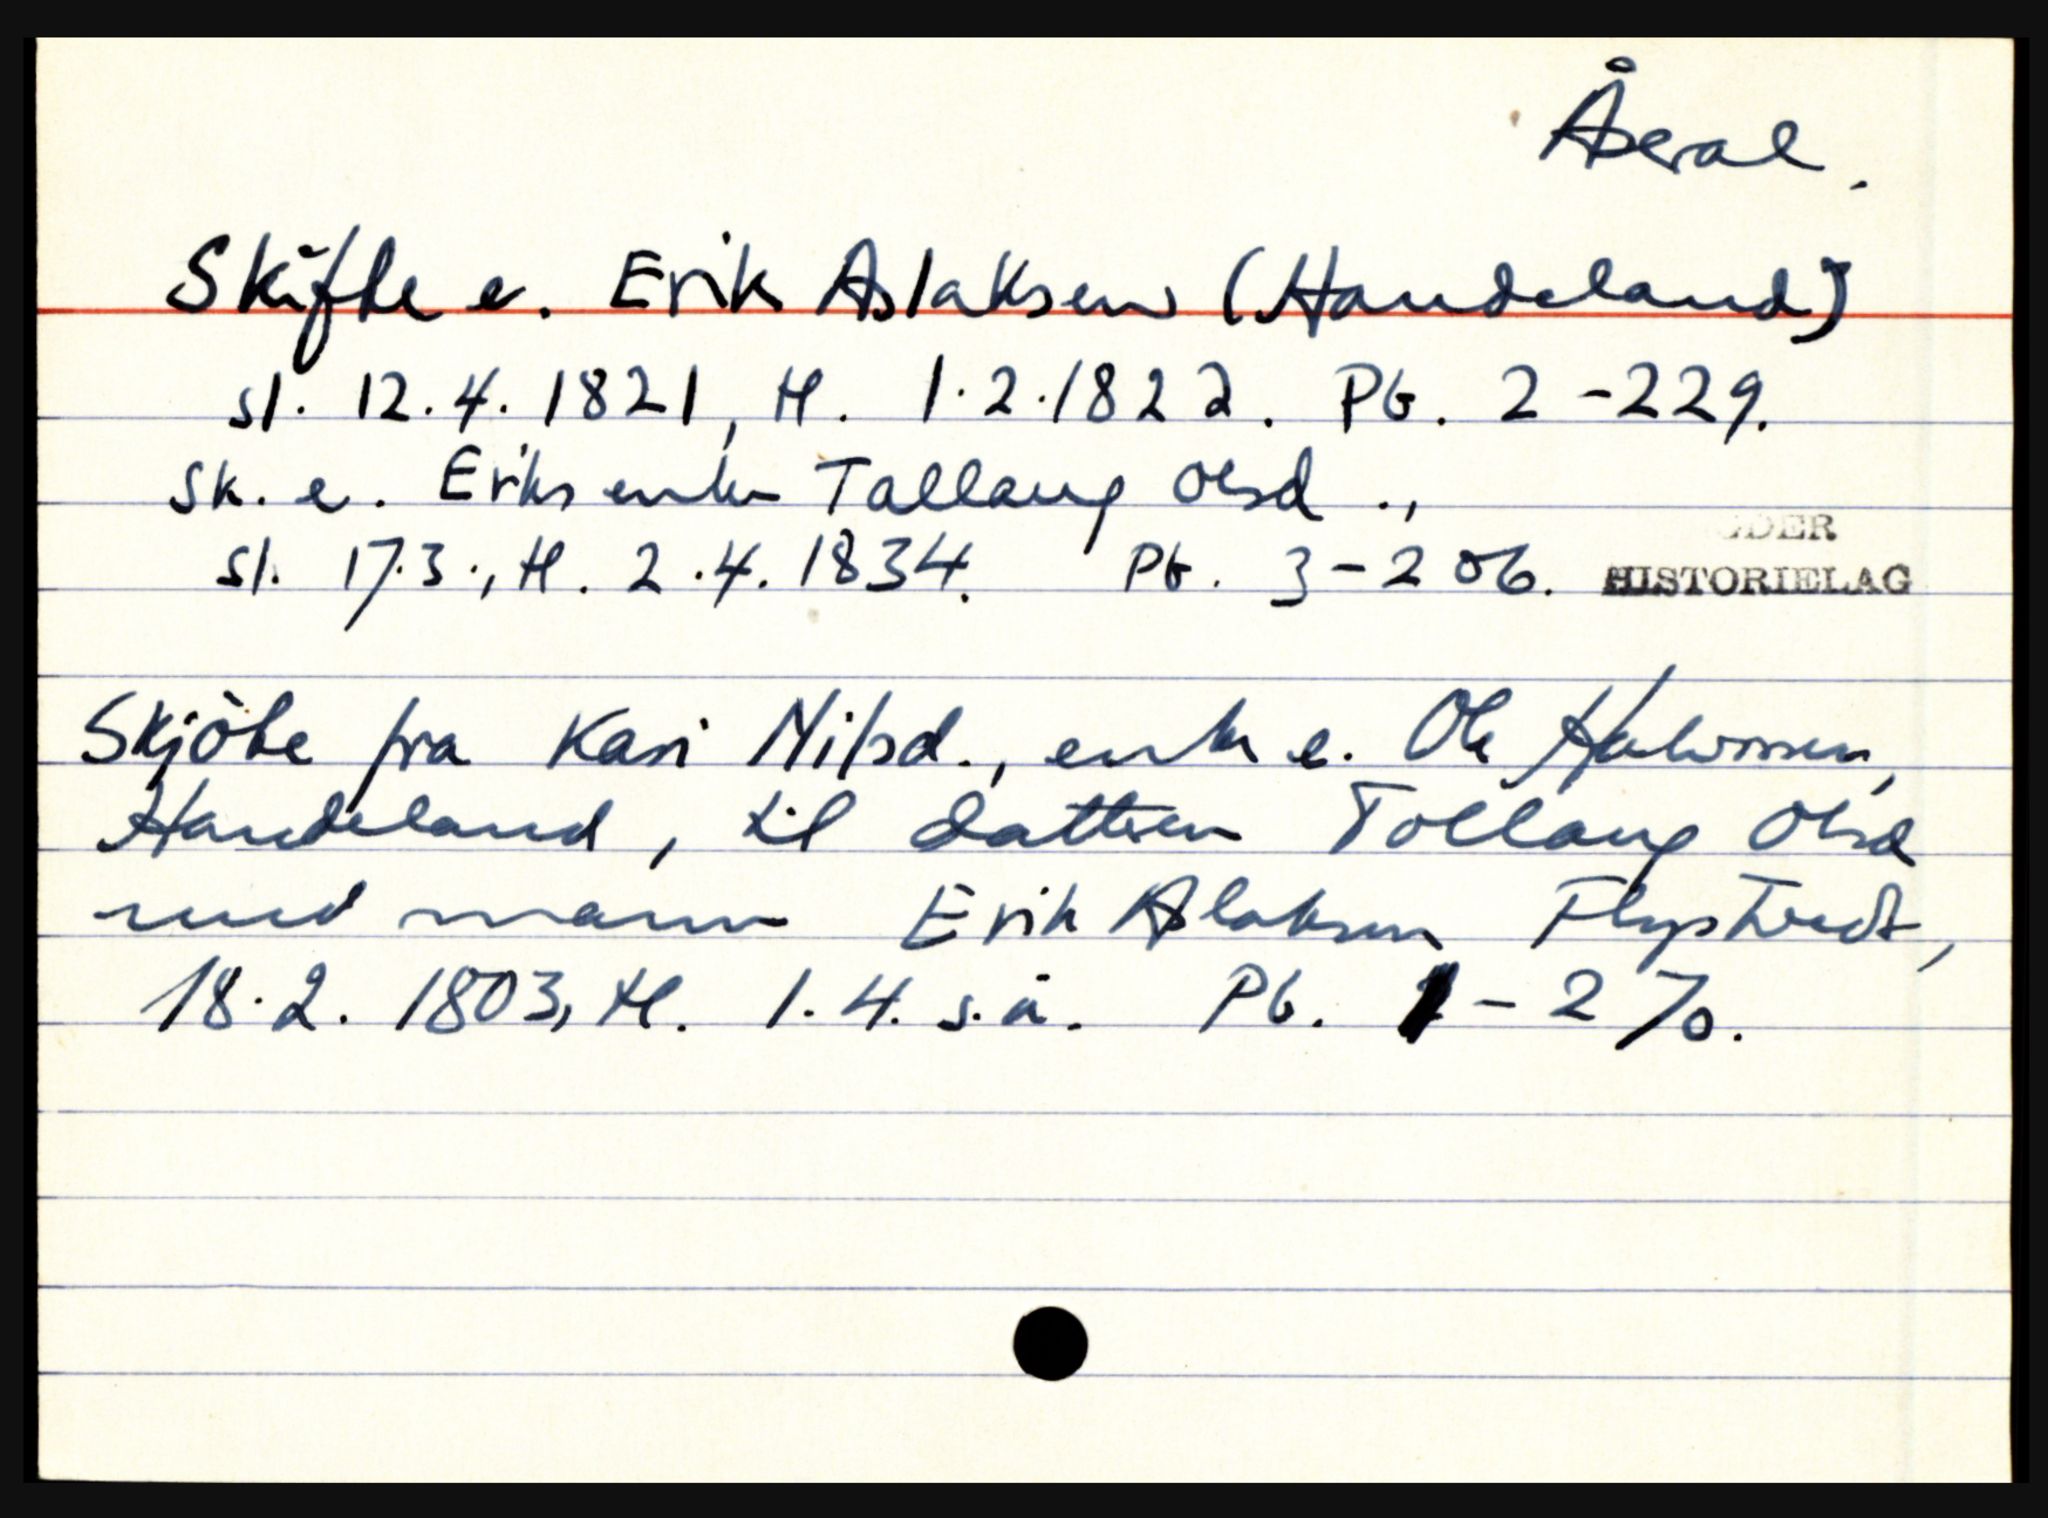 Åseral.
Skifte e. Erik Aslaksen (Handeland)
sl. 12.4.1821, tl. 1.2.1822. Pb. 2-229.
Sk. e. Eriks enke Tallaug Olsd.,
sl. 17.3., tl. 2.4.1834. Pb. 3-206.
GDER
HISTORIELAG
Skjöte fra Kari Nilsd., enke e. Ole Halvorsen,
Handeland, til datteren Tollaug Olsd
med mann Erik Aslaksen Flystveit,
18.2.1803, tl. 1.4. s.å. Pb. 1-270.